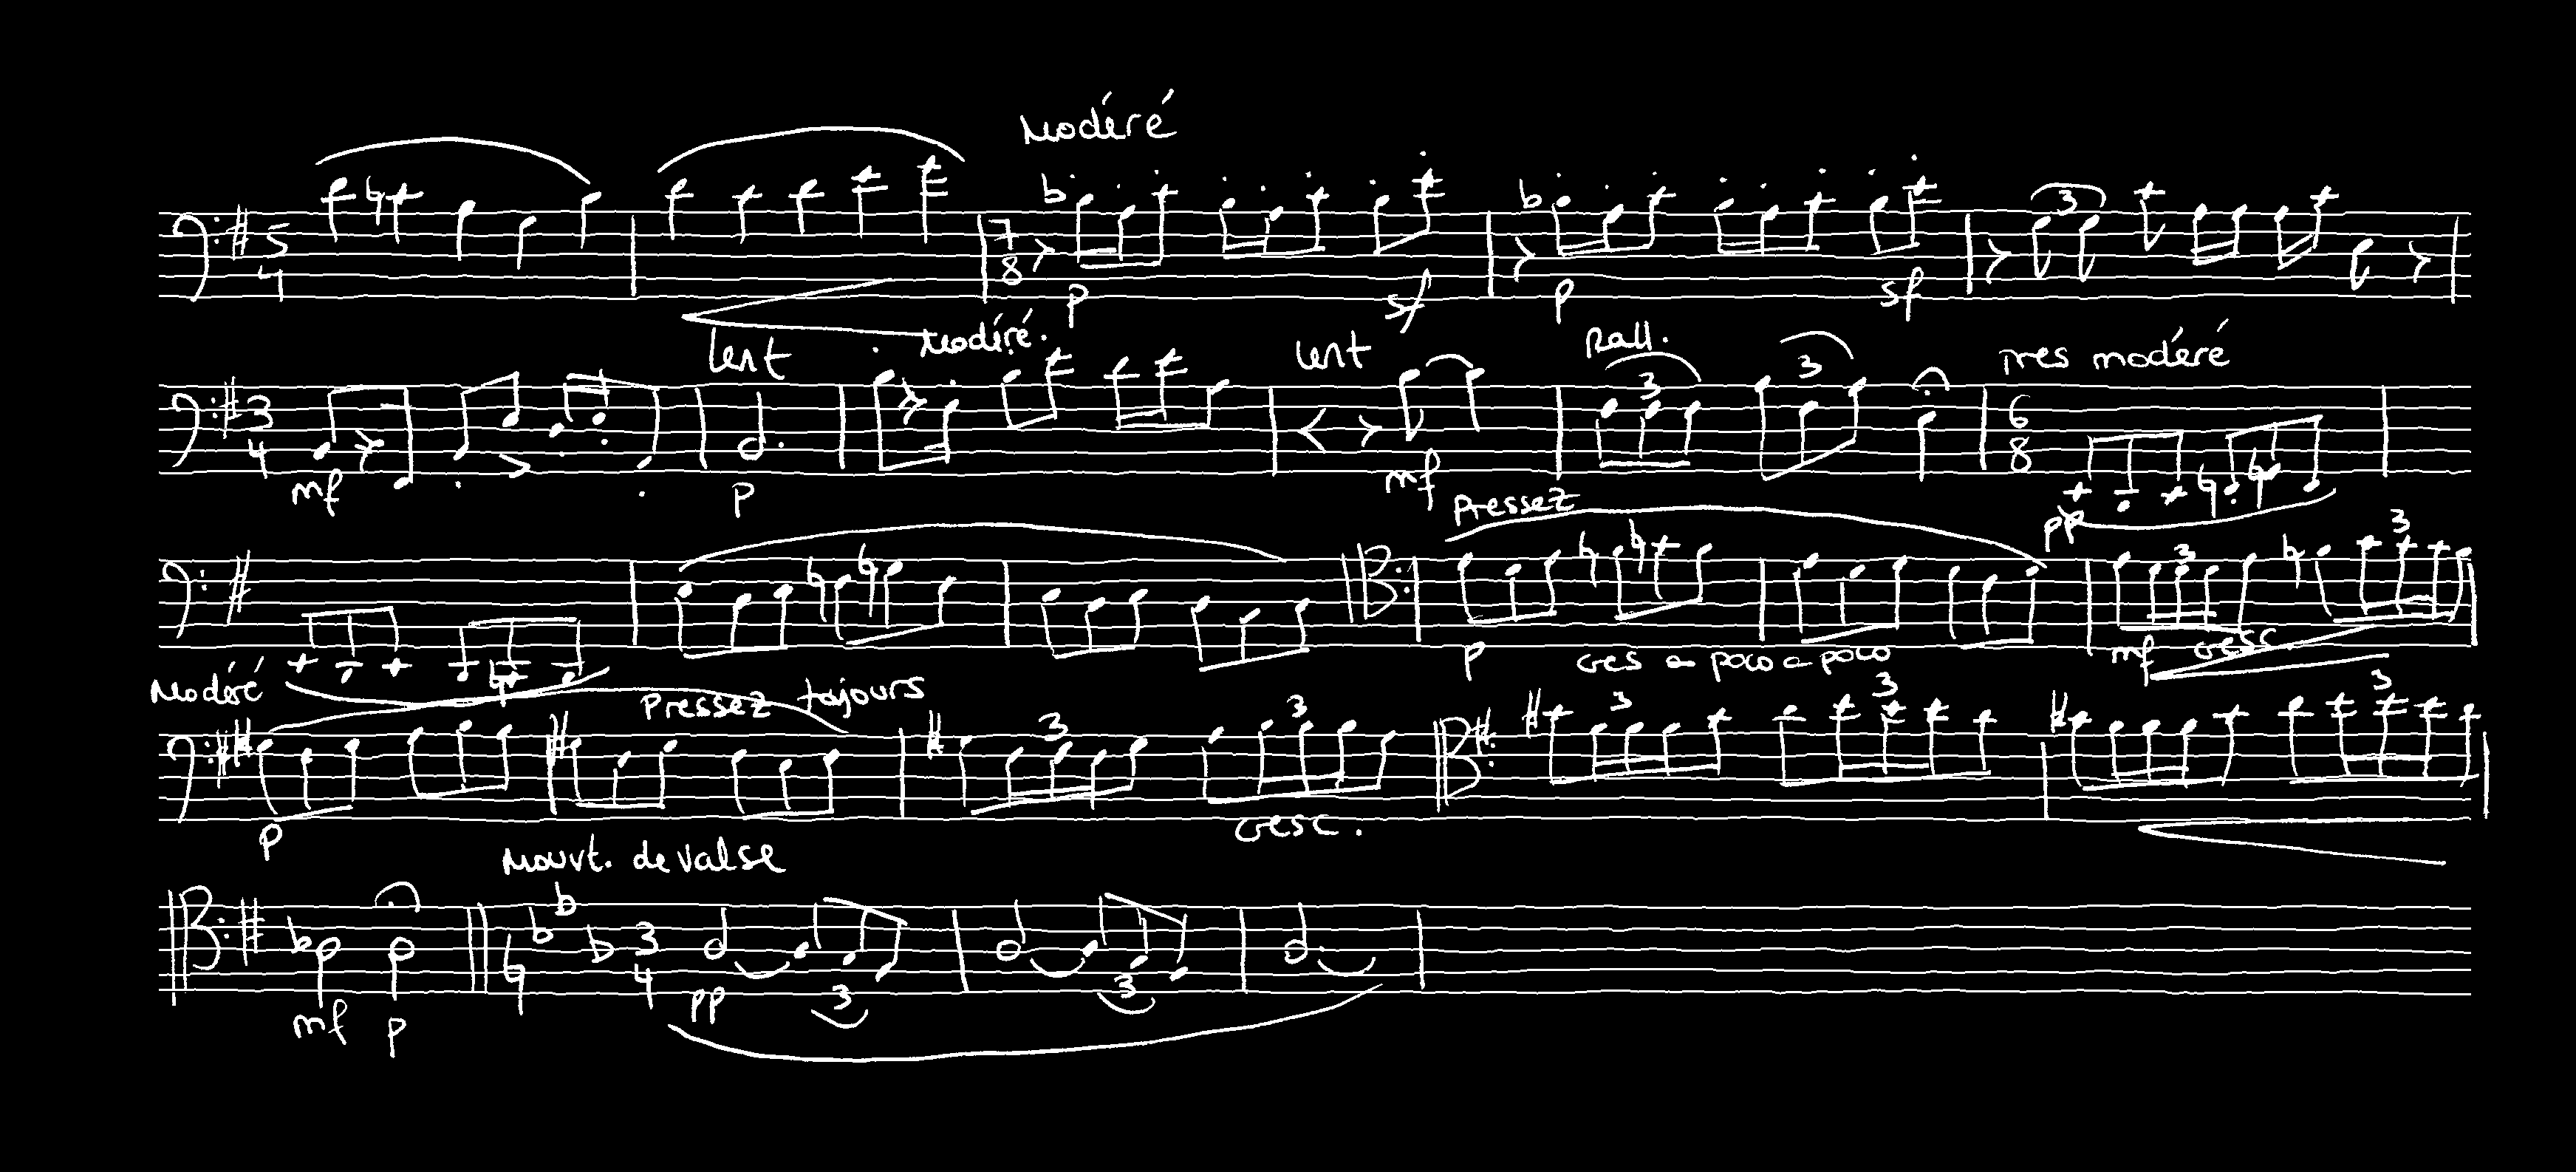 Modéré
5 4 7 8 3
p sf p sf
lent Modéré. lent Rall. Tres modéré
3 4 3 3 6 8
mf p mf pp
Pressez
3 3
p cres a poco a poco mf cresc.
Modéré Pressez toujours
3 3 3 3 3
p cresc.
Mouvt. de valse
3 4
mf p pp 3 3